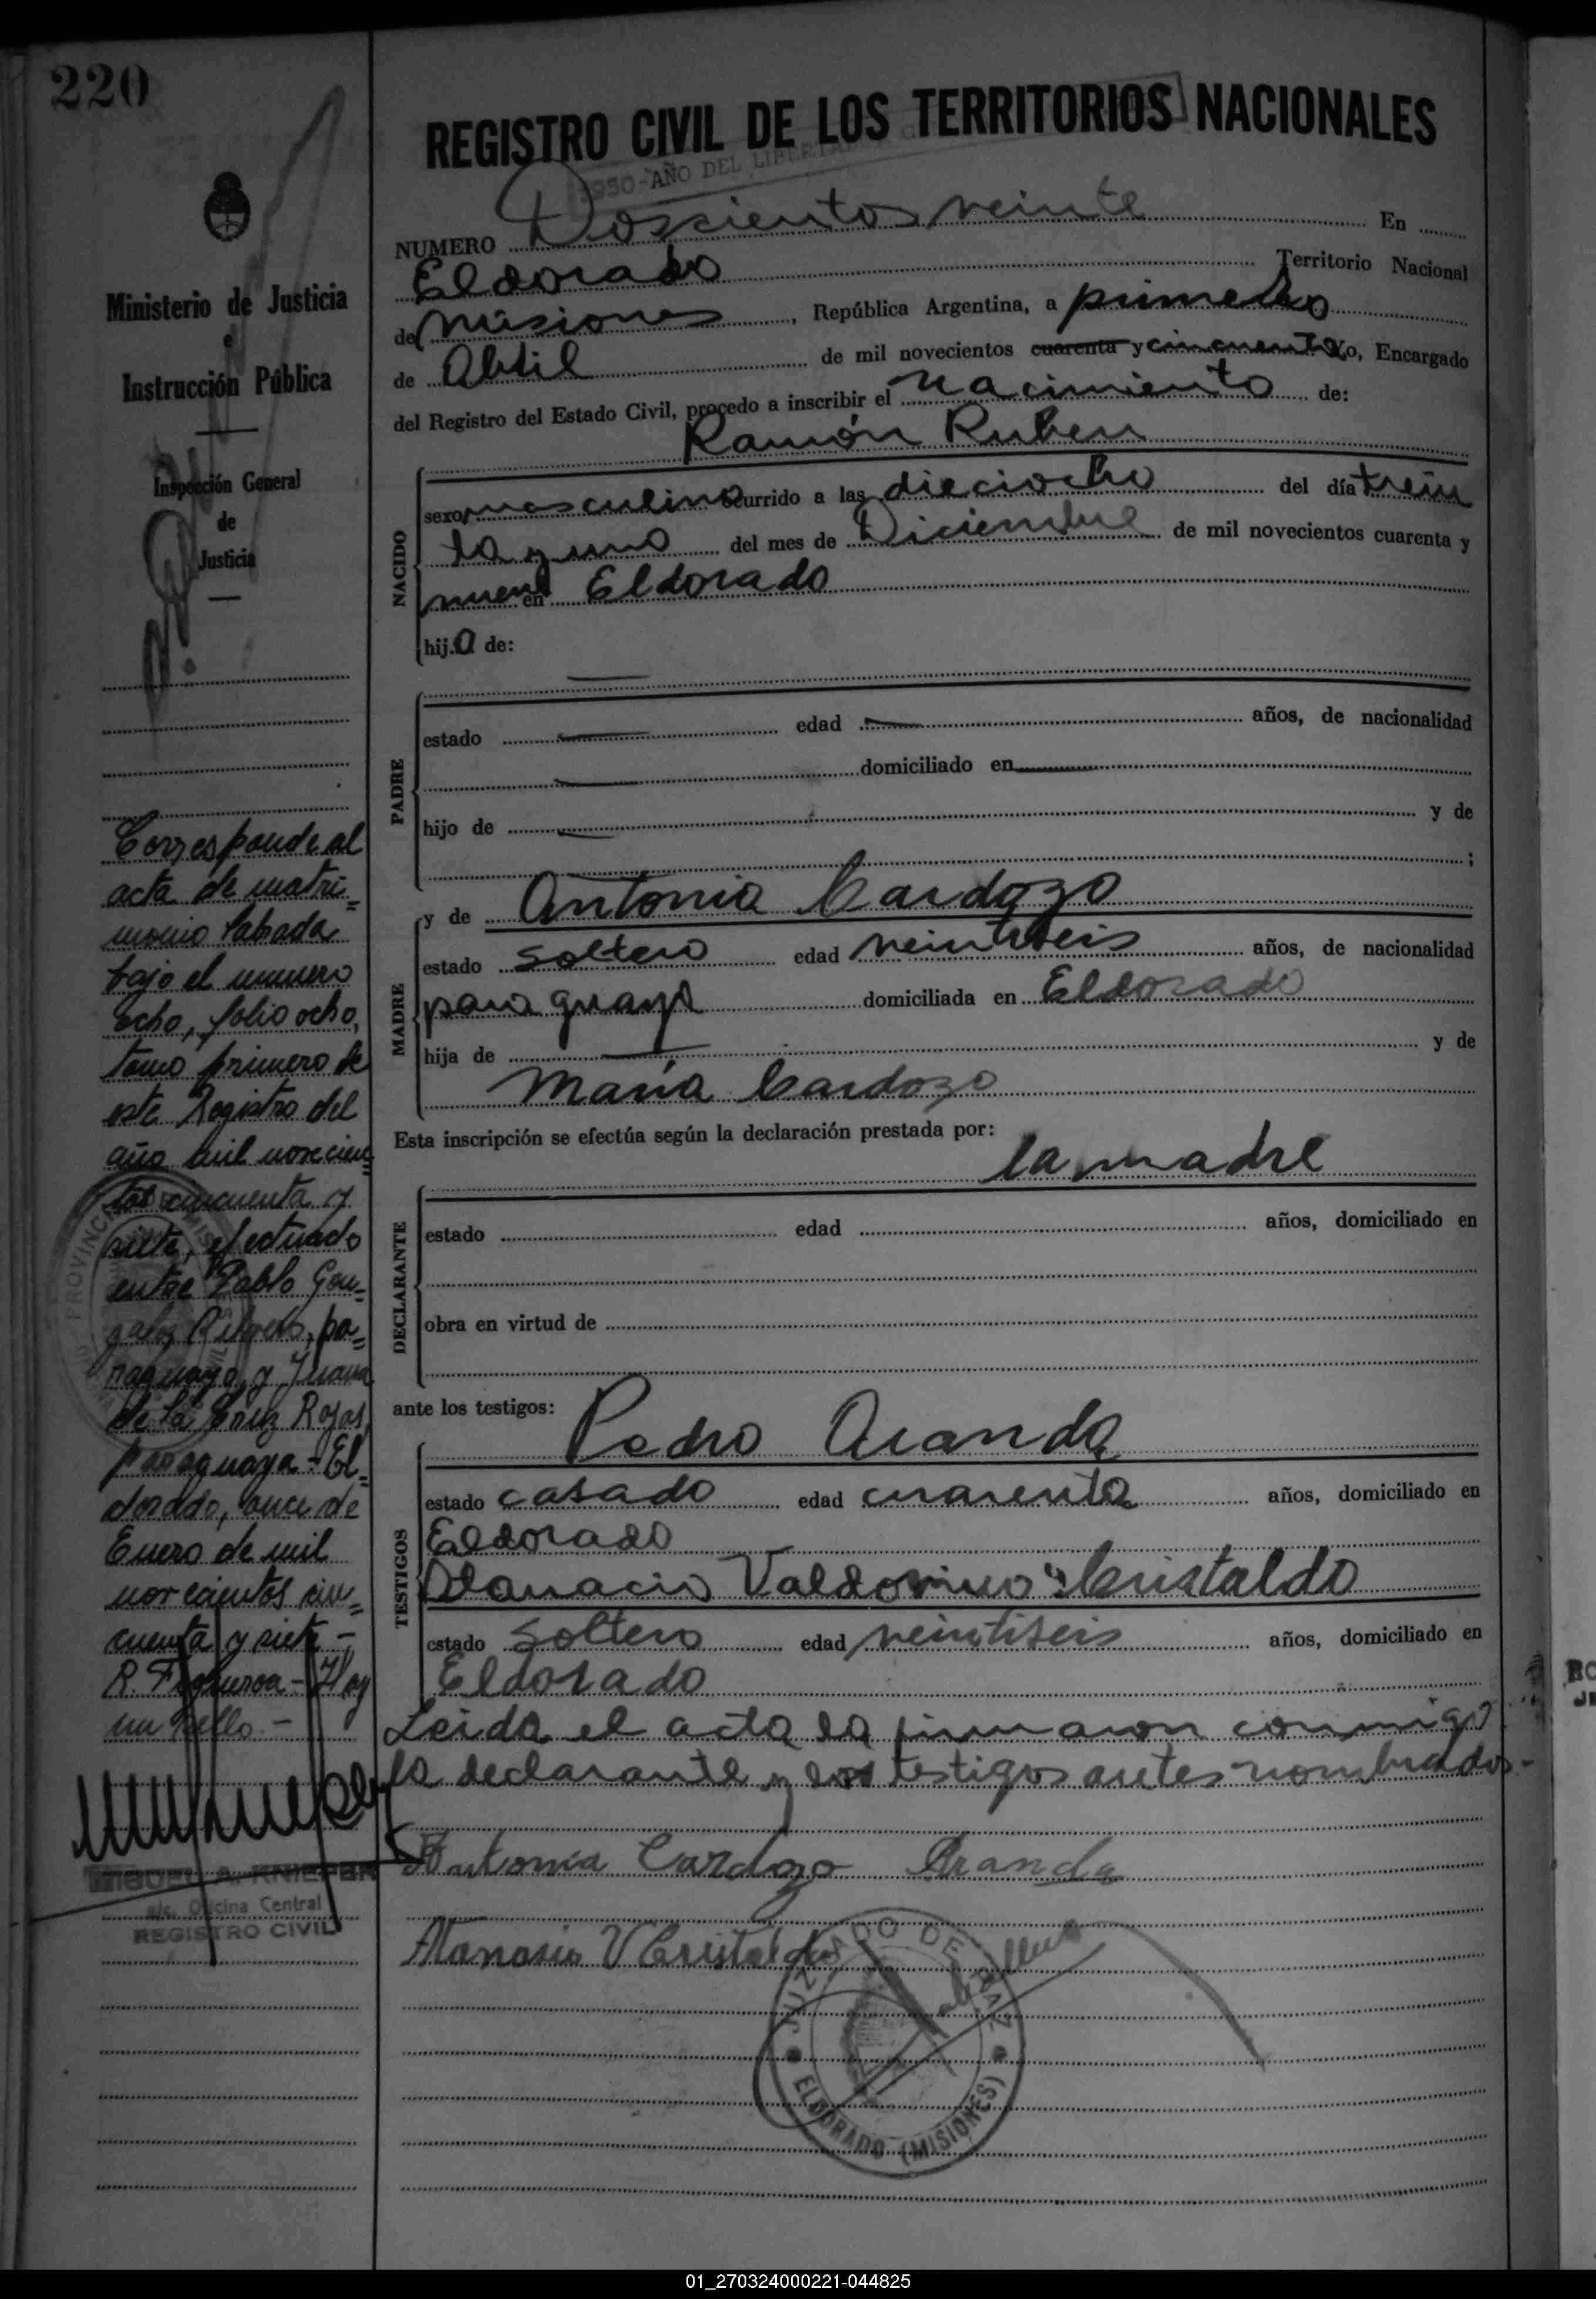 220
REGISTRO CIVIL DE LOS TERRITORIOS NACIONALES
1950-AÑO DEL LIBERTADOR
NUMERO Doscientos veinte En
Eldorado Territorio Nacional
de Misiones, República Argentina, a primero
de Abril de mil novecientos cuarenta y cincuenta Yo, Encargado
del Registro del Estado Civil, procedo a inscribir el nacimiento de:
Ramón Ruben
NACIDO
sexo masculino ocurrido a las dieciocho del día trein
ta y uno del mes de Diciembre de mil novecientos cuarenta y
nueve en Eldorado
hij.o de:
PADRE
estado — edad — años, de nacionalidad
— domiciliado en —
hijo de — y de
;
MADRE
y de Antonia Cardozo
estado soltero edad veintiseis años, de nacionalidad
paraguaya domiciliada en Eldorado
hija de — y de
María Cardozo
Esta inscripción se efectúa según la declaración prestada por:
la madre
DECLARANTE
estado edad años, domiciliado en
obra en virtud de
ante los testigos:
Pedro Aranda
TESTIGOS
estado casado edad cuarenta años, domiciliado en
Eldorado
Atanacio Valdovino Cristaldo
estado soltero edad veintiseis años, domiciliado en
Eldorado
Leida el acta la firmaron conmigo
la declarante y los testigos antes nombrados.-
Antonia Cardozo Aranda
Atanasio V Cristaldo
JUZGADO DE PAZ
ELDORADO (MISIONES)
Ministerio de Justicia
e
Instrucción Pública
Inspección General
de
Justicia
Corresponde al
acta de matri=
monio labrada
bajo el numero
ocho, folio ocho,
tomo primero de
este Registro del
año mil novecien=
tos cincuenta y
siete, efectuado
entre Pablo Gon=
zalez Riveros, pa=
raguayo, y Juana
de la Cruz Rojas,
paraguaya - El=
dorado, once de
Enero de mil
novecientos cin=
cuenta y siete -
R. Figueroa - Hay
un sello. -
MIGUEL A. KNIEPER
a/c. Oficina Central
REGISTRO CIVIL
01_270324000221-044825